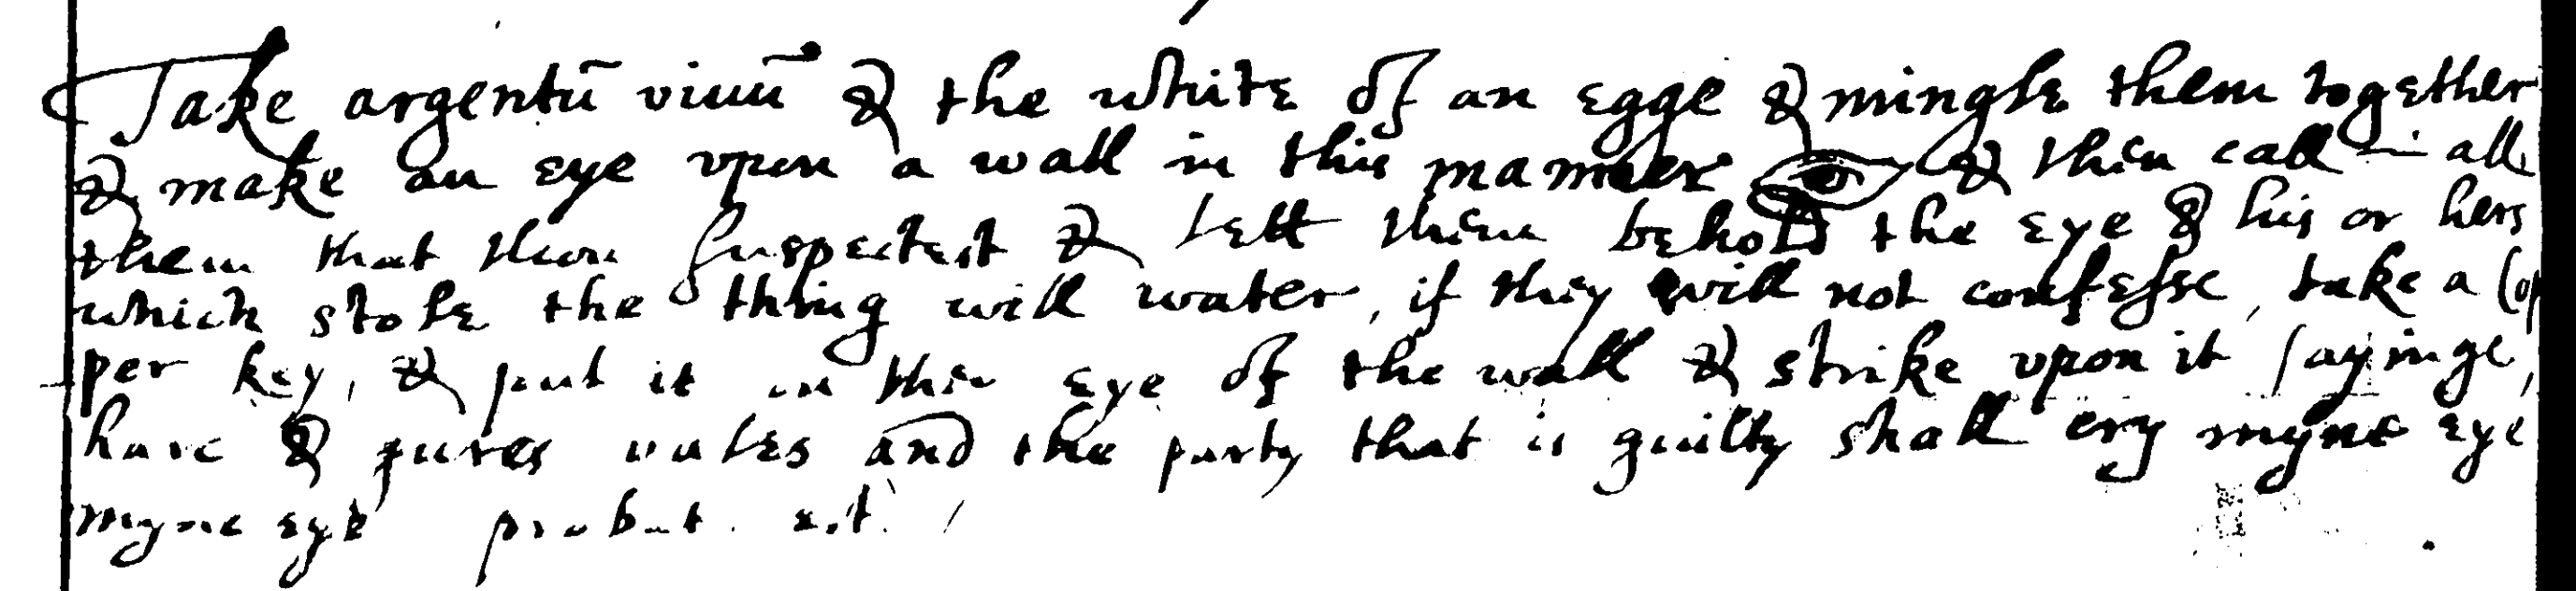 Take argentū viuū & the white of an egge & mingle them together
& make an eye vpon a wall in this manner & then call in all
them that thou suspectest & lett them behold the eye & his or hers
which stole the thing will water, if they will not confesse, take a Cop
per key, & put it in the eye of the wall & strike vpon it sayinge,
&  and the party that is guilty shall cry myne eye
myne eye probat. est.